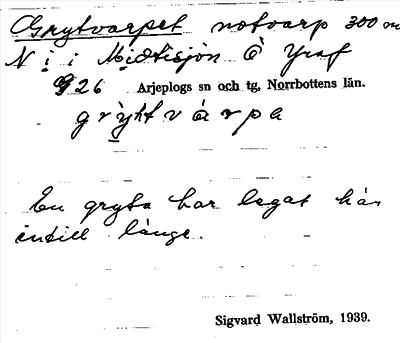 Grytvarpet notvarp 300 m
N i i Midtisjön Ö Yraf
926 Arjeplogs sn och tg, Norrbottens län.
grytvarpa
En gryta har legat här
intill länge.
Sigvard Wallström, 1939.